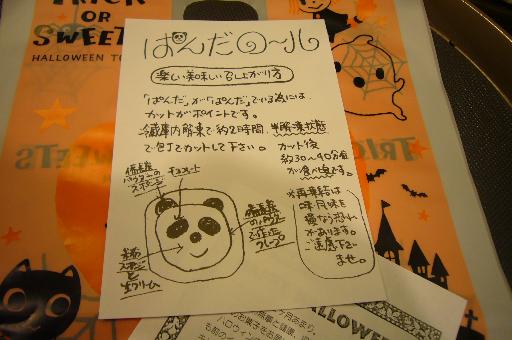 TRICK
OR
SWEETS
HALLOWEEN TO
ぱんだロール
楽しい美味しい召し上がり方
「ぱんだ」が「ぱんだ」でいる為には、
カットがポイントです。
冷蔵庫内解凍で約2時間、半解凍状態
で包丁でカットして下さい。
カット後
約30〜40分位
が食べ頃です。
チョコレート
※再凍結は
味、風味を
損なう恐れ
があります。
ご遠慮下さい
ませ。
スポンジ
と
生クリーム
クレープ
TRICK